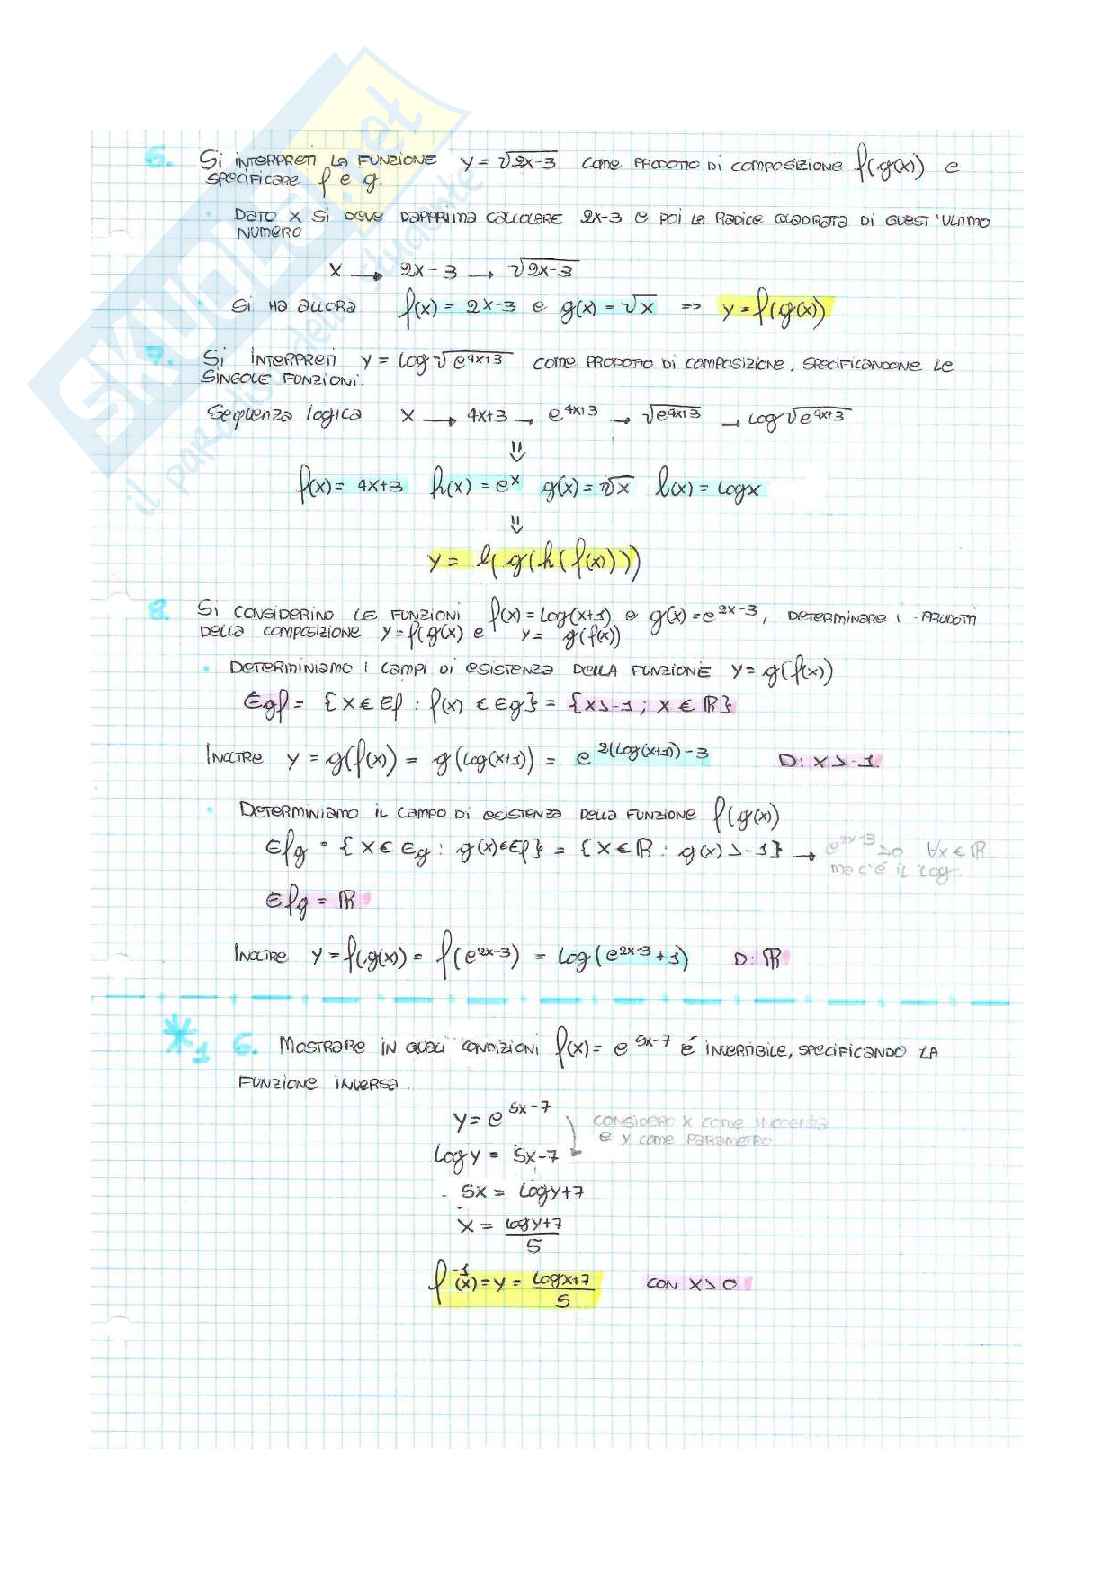 6. Si interpreti la funzione y = √2x-3 come prodotto di composizione f(g(x)) e
specificare f e g.
• Dato x si deve dapprima calcolare 2x-3 e poi le radice quadrata di quest'ultimo
numero
x → 2x-3 → √2x-3
• Si ha allora f(x) = 2x-3 e g(x) = √x => y = f(g(x))
7. Si interpreti y = log √e^4x+3 come prodotto di composizione, specificandone le
singole funzioni.
Sequenza logica x → 4x+3 → e^4x+3 → √e^4x+3 → log √e^4x+3
⇓
f(x) = 4x+3 h(x) = e^x g(x) = √x l(x) = log x
⇓
y = l(g(h(f(x))))
8. Si considerino le funzioni f(x) = log(x+1) e g(x) = e^2x-3, determinare i prodotti
della composizione y = f(g(x)) e y = g(f(x))
• Determiniamo i campi di esistenza della funzione y = g(f(x))
Egf = {x ∈ Ef : f(x) ∈ Eg} = {x > -1; x ∈ ℝ}
Inoltre y = g(f(x)) = g(log(x+1)) = e^2(log(x+1))-3 D: x > -1
• Determiniamo il campo di esistenza della funzione f(g(x))
Efg = {x ∈ Eg : g(x) ∈ Ef} = {x ∈ ℝ : g(x) > -1} → e^2x-3 > 0 ∀x ∈ ℝ
ma c'è il log
Efg = ℝ
Inoltre y = f(g(x)) = f(e^2x-3) = log(e^2x-3 + 1) D: ℝ
*1 6. Mostrare in quali condizioni f(x) = e^5x-7 è invertibile, specificando la
funzione inversa.
y = e^5x-7
considero x come incognita
e y come parametro
log y = 5x-7
5x = log y+7
x = log y+7 / 5
f^-1(x) = y = log x+7 / 5 con x > 0
SKUOLA.net
il paradiso dello studente